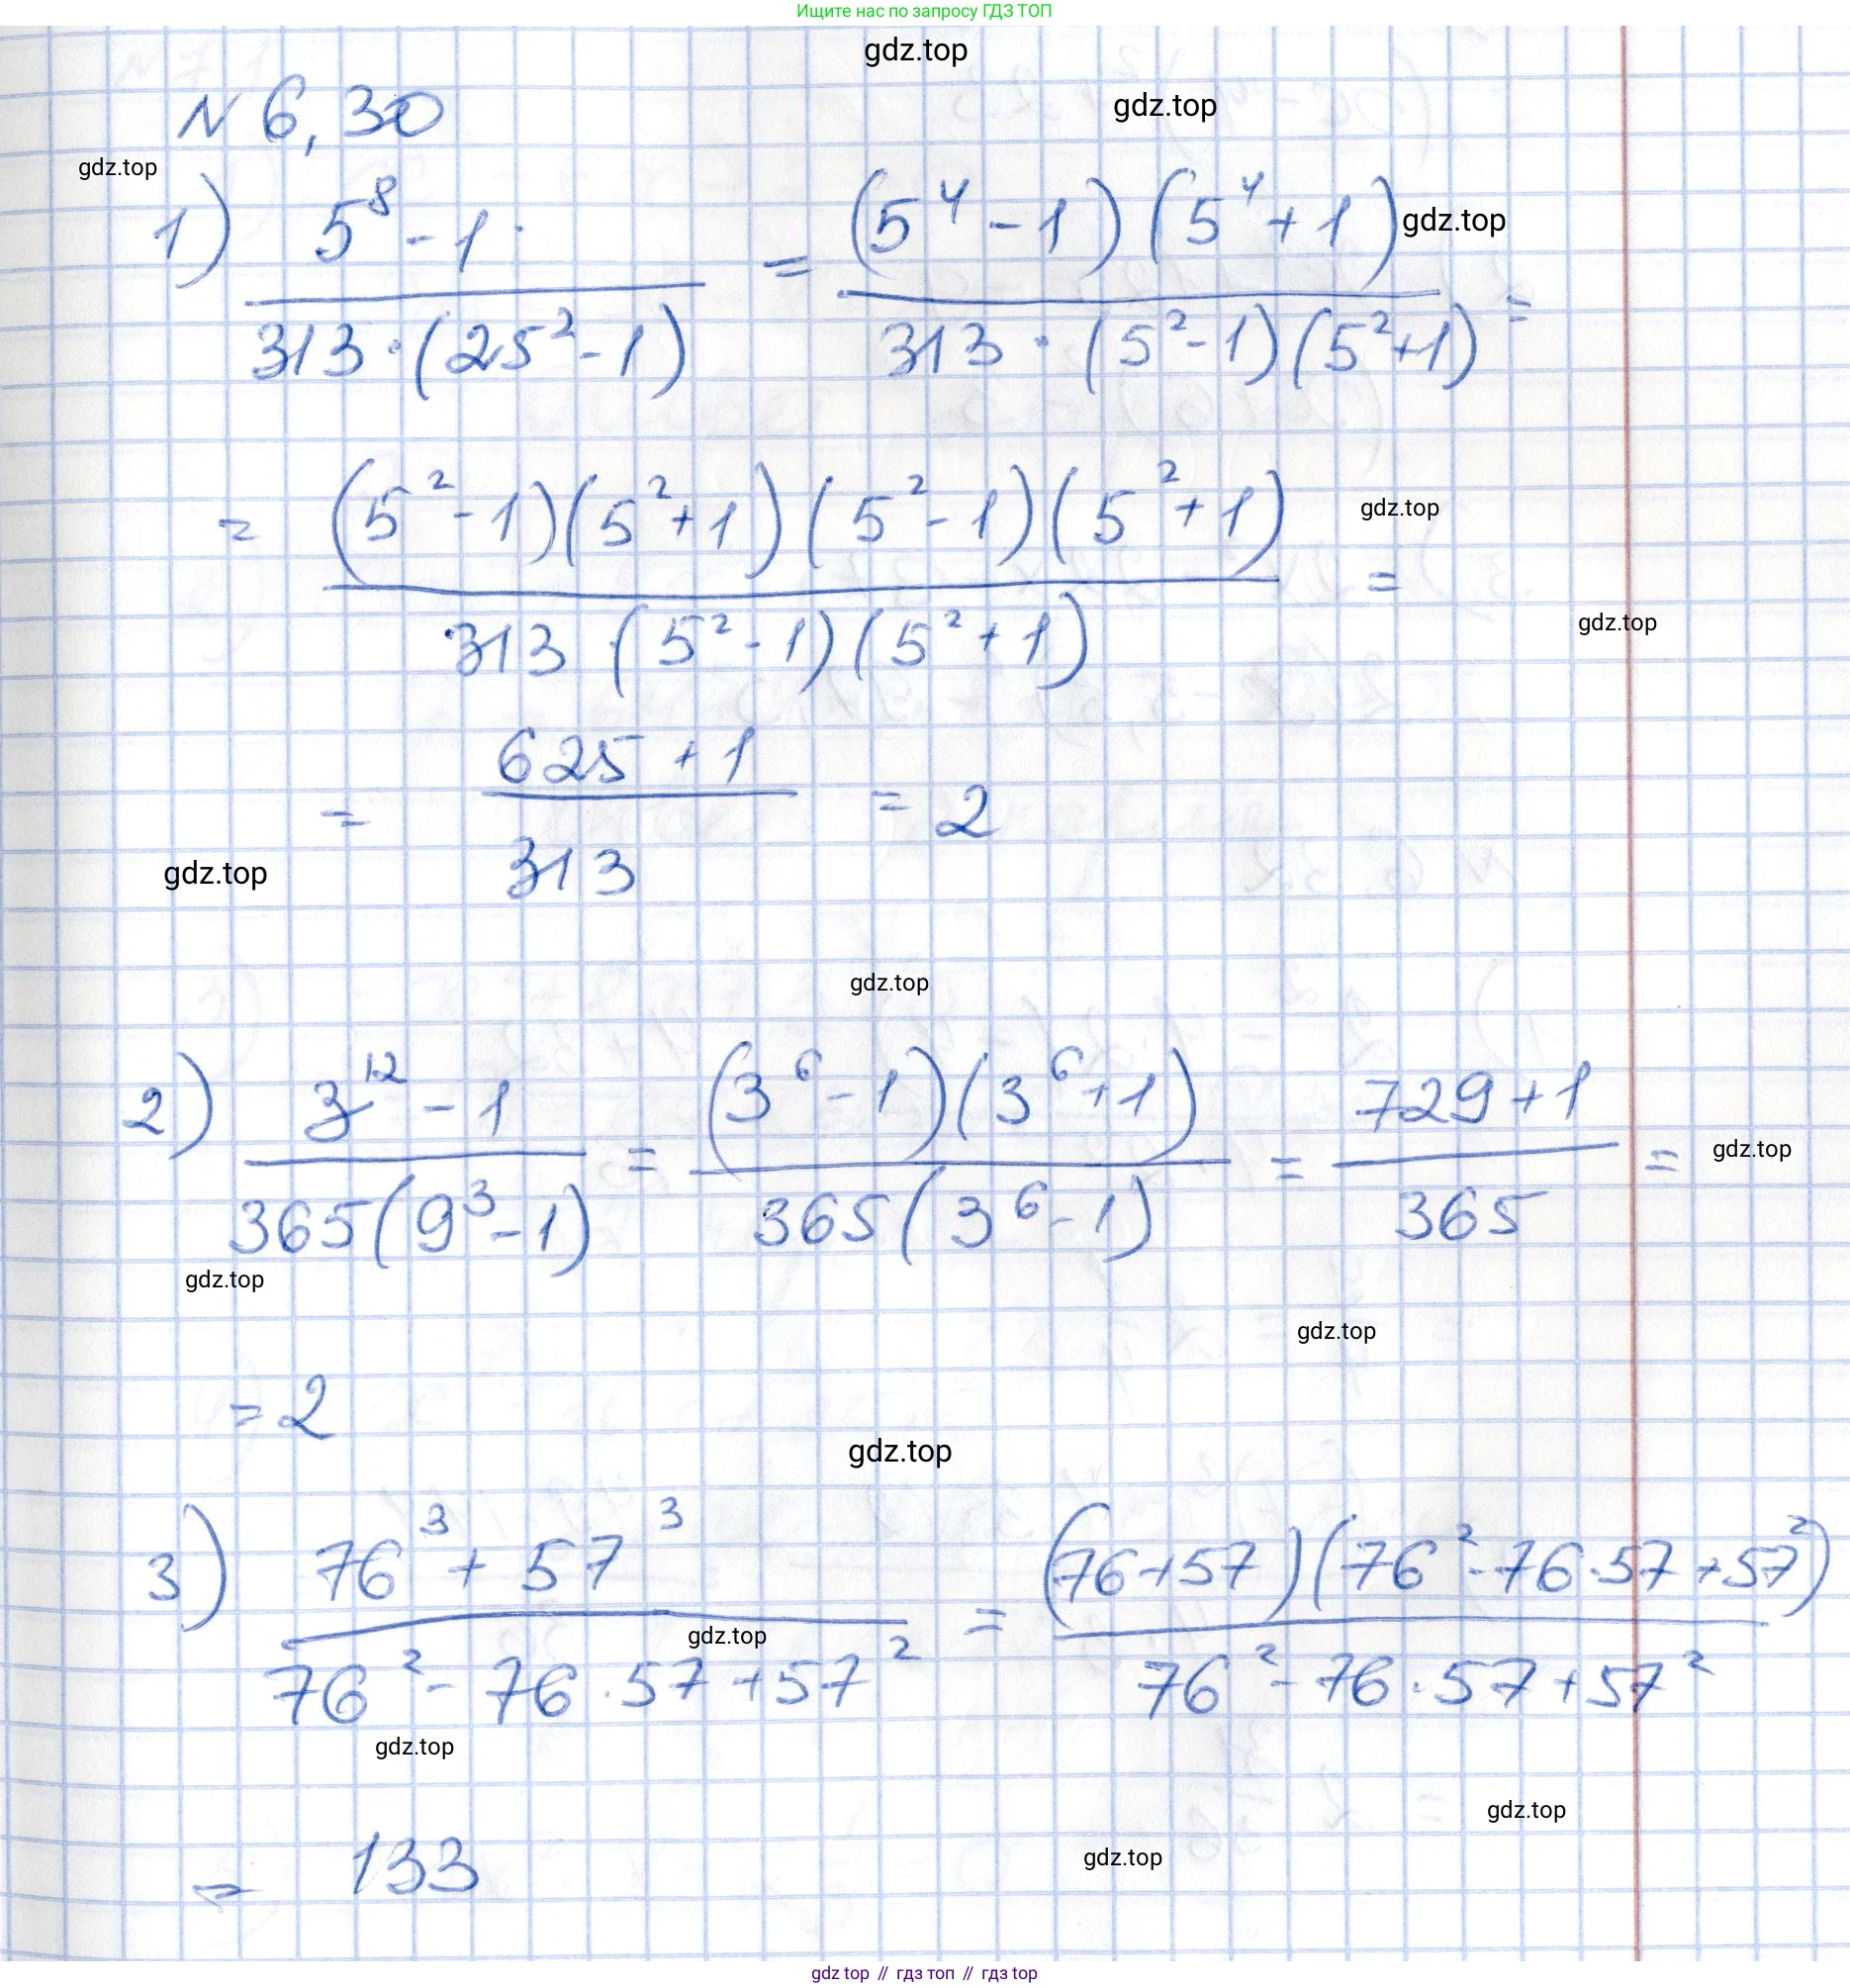 Ищите нас по запросу ГДЗ ТОП
gdz.top
gdz.top
N 6,30
gdz.top
1) (5^8 - 1)/(313 · (25^2 - 1)) = ((5^4 - 1)(5^4 + 1))/(313 · (5^2 - 1)(5^2 + 1)) =
gdz.top
= ((5^2 - 1)(5^2 + 1)(5^2 - 1)(5^2 + 1))/(313 (5^2 - 1)(5^2 + 1)) =
gdz.top
gdz.top
= (625 + 1)/313 = 2
gdz.top
gdz.top
2) (3^12 - 1)/(365(9^3 - 1)) = ((3^6 - 1)(3^6 + 1))/(365(3^6 - 1)) = (729 + 1)/365 =
gdz.top
gdz.top
gdz.top
= 2
gdz.top
3) (76^3 + 57^3)/(76^2 - 76 · 57 + 57^2) = ((76 + 57)(76^2 - 76 · 57 + 57^2))/(76^2 - 76 · 57 + 57^2)
gdz.top
gdz.top
gdz.top
gdz.top
= 133
gdz top // гдз топ // гдз top